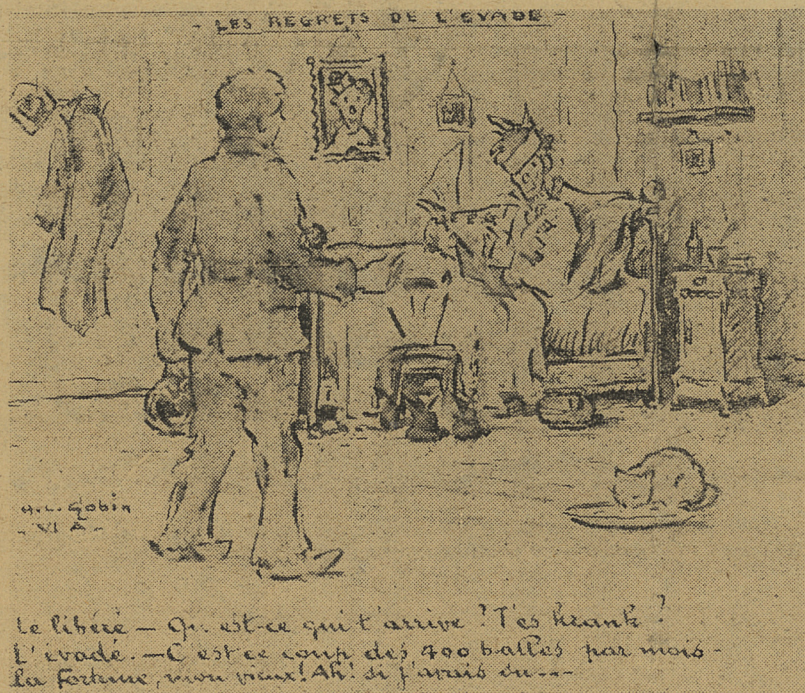 - LES REGRETS DE L'EVADE -
H.L. Gobin
- VI A -
Le libéré — Qu'est-ce qui t'arrive ? T'es krank ?
L'évadé. — C'est ce coup des 400 balles par mois -
La fortune, mon vieux ! Ah ! si j'avais su ---